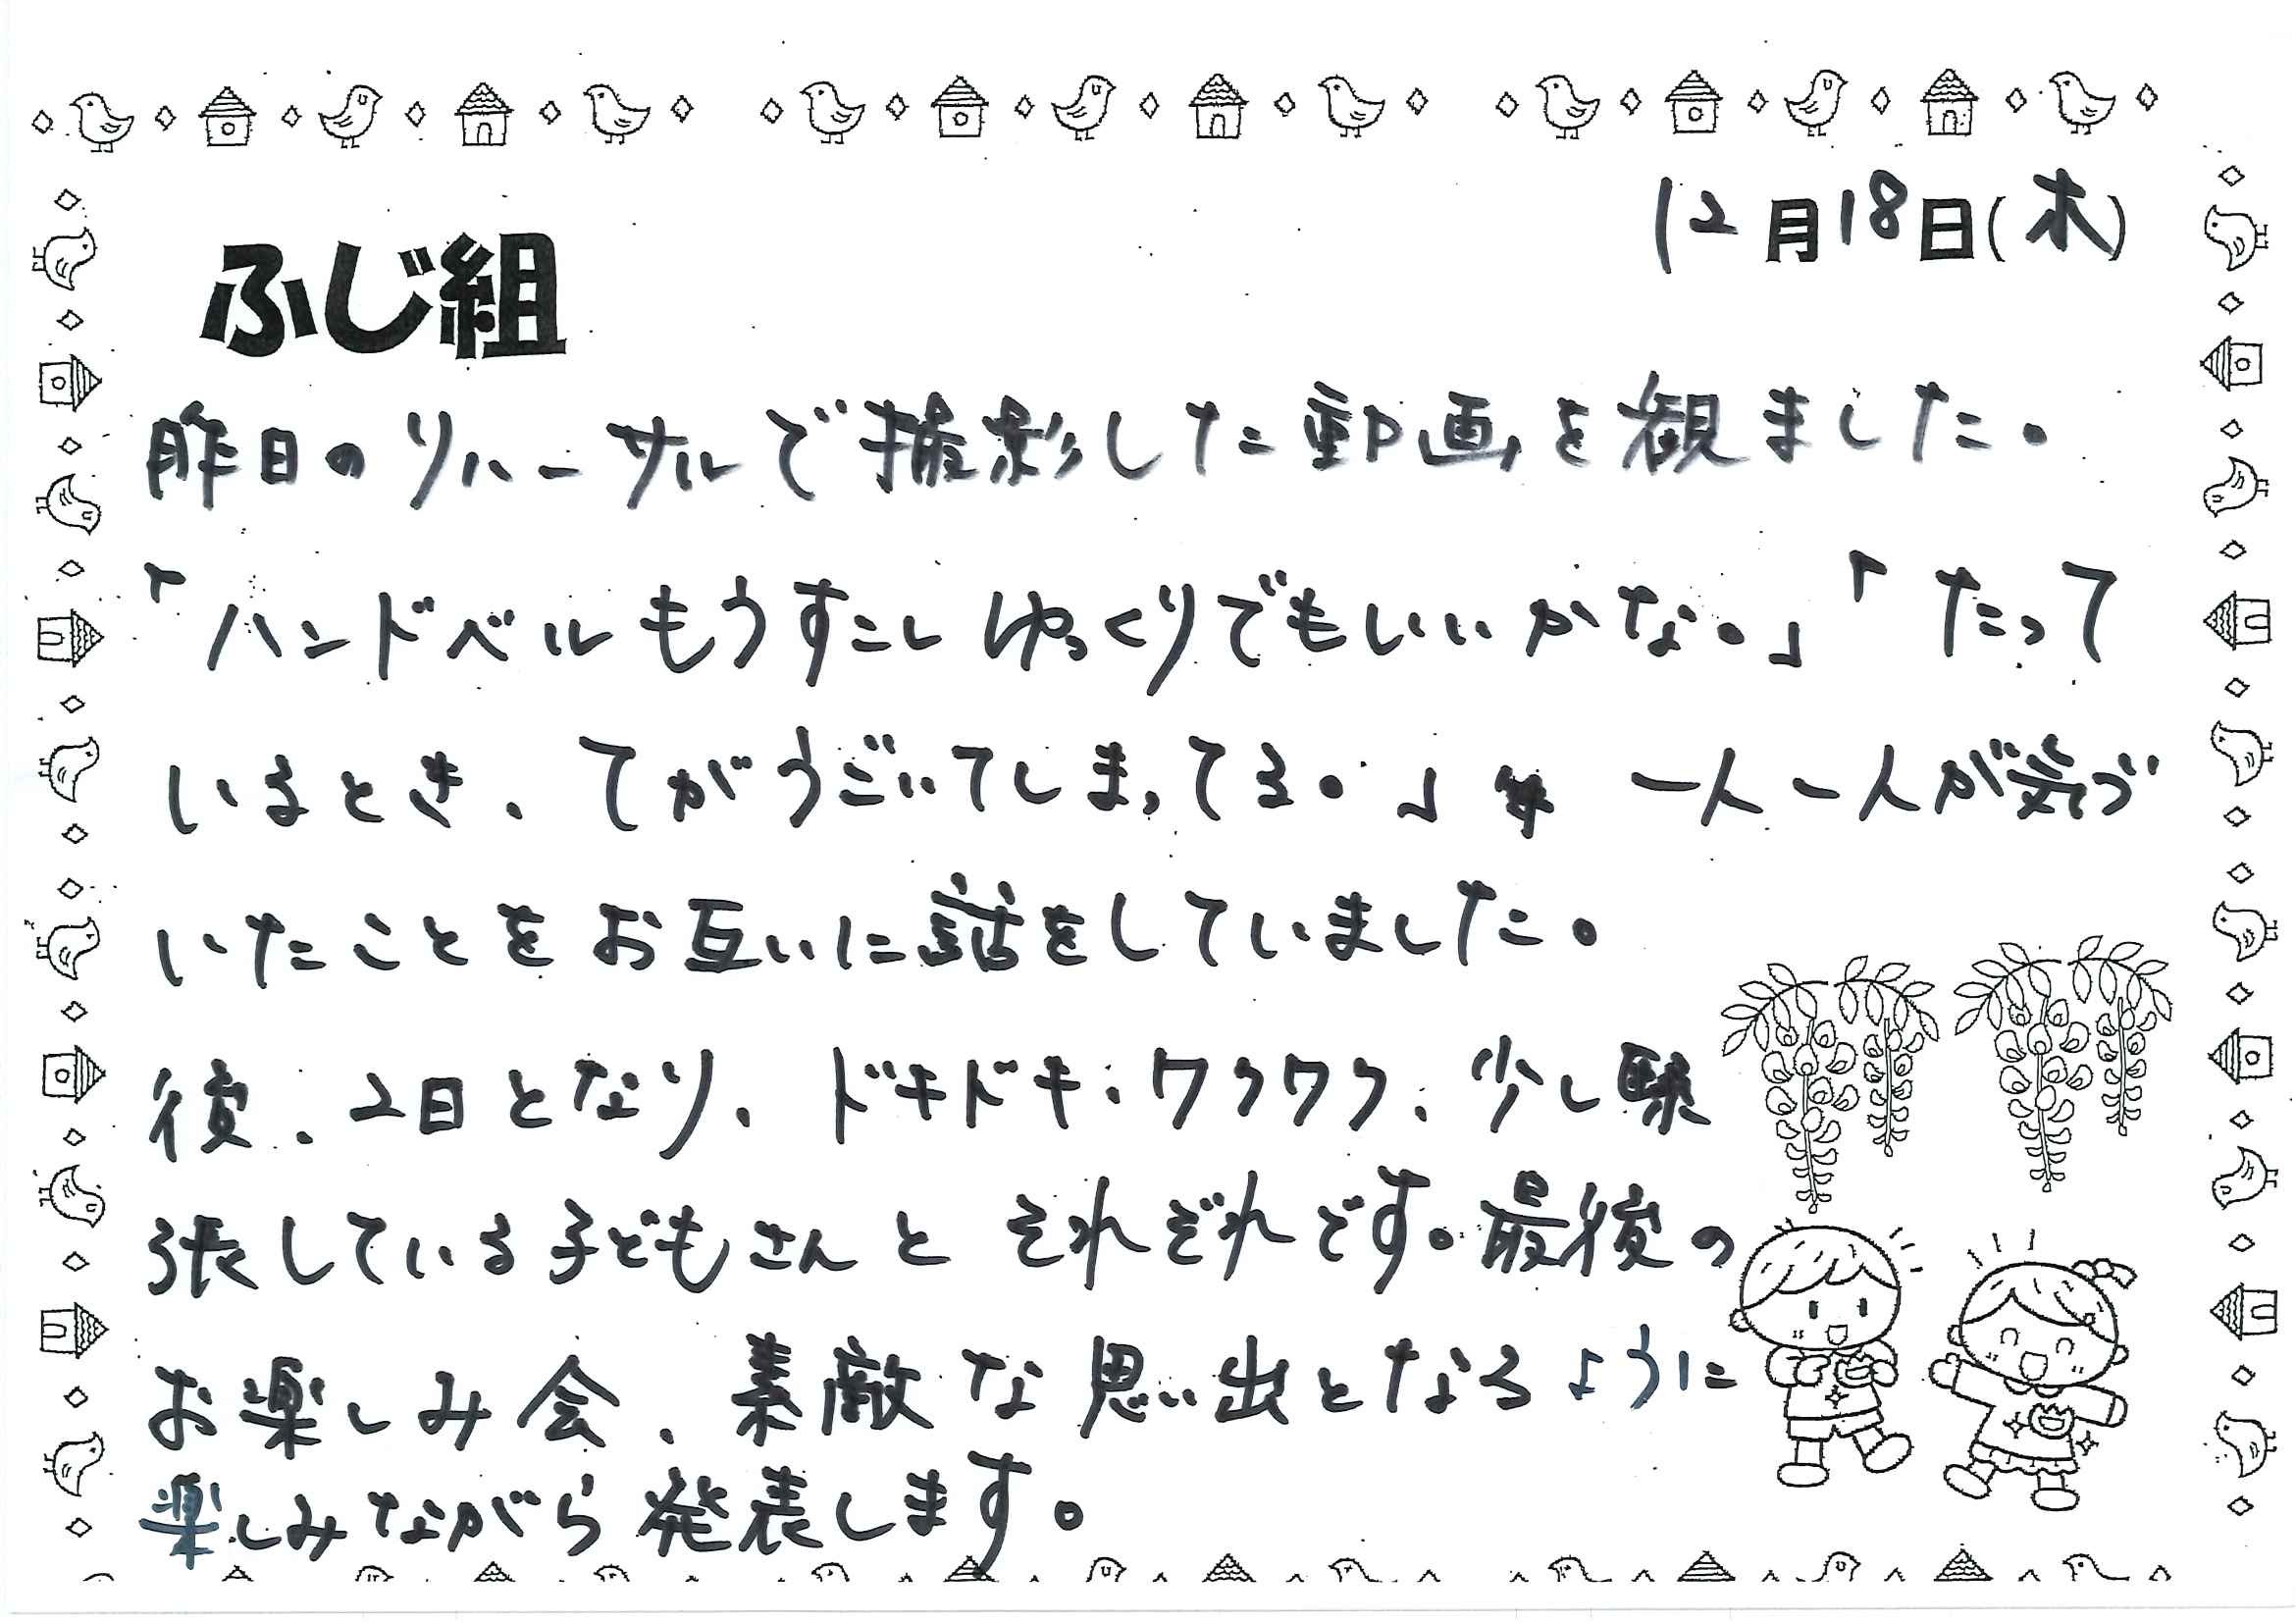 12月18日(木)
ふじ組
昨日のリハーサルで撮影した動画を観ました。
「ハンドベルもうすこしゆっくりでもいいかな。」「たって
いるとき、てがうごいてしまってる。」 一人一人が気づ
いたことをお互いに話をしていました。
後、2日となり、ドキドキ、ワクワク、少し緊
張している子どもさんと それぞれです。最後の
お楽しみ会、素敵な思い出となるように
楽しみながら発表します。